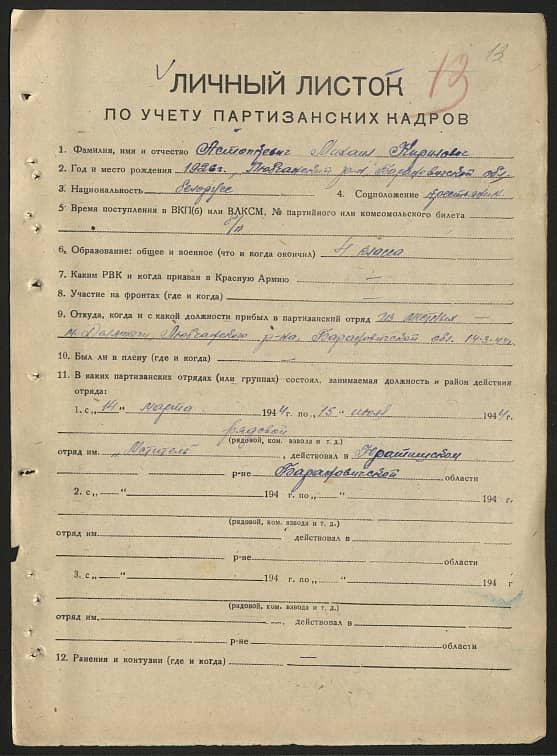 13
13
ЛИЧНЫЙ ЛИСТОК
ПО УЧЕТУ ПАРТИЗАНСКИХ КАДРОВ
1. Фамилия, имя и отчество Михаил
2. Год и место рождения 1926 г. Барановичской обл.
3. Национальность белорус 4. Соцположение крестьянин
5 Время поступления в ВКП(б) или ВЛКСМ, № партийного или комсомольского билета
б/п
6. Образование: общее и военное (что и когда окончил) 4 класса
7. Каким РВК и когда призван в Красную Армию —
8. Участие на фронтах (где и когда)
9. Откуда, когда и с какой должности прибыл в партизанский отряд из
Любчанского р-на, Барановичской обл. 14-3-44г.
10. Был ли в плену (где и когда) —
11. В каких партизанских отрядах (или группах) состоял, занимаемая должность и район действия
отряда:
1. с „14“ марта 1944 г. по „15“ июля 1944 г.
рядовой
(рядовой, ком. взвода и т. д.)
отряд им. „Мститель“, действовал в
р-не Барановичской области
2. с „—“ 194 г. по „—“ 194 г.
(рядовой, ком. взвода и т. д.)
отряд им. , действовал в
р-не области
3. с „—“ 194 г. по „—“ 194 г
(рядовой, ком. взвода и т. д.)
отряд им. , действовал в
р-не области
12. Ранения и контузии (где и когда) —